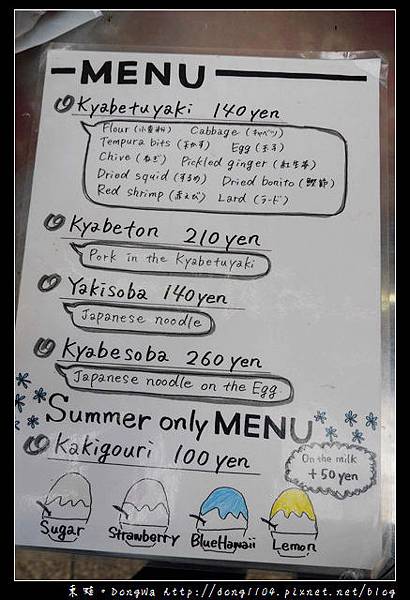 MENU
Kyabetuyaki 140 yen
Flour (小麦粉) Cabbage (キャベツ)
Tempura bits (天かす) Egg (玉子)
Chive (ねぎ) Pickled ginger (紅生姜)
Dried squid (するめ) Dried bonito (鰹節)
Red shrimp (赤えび) Lard (ラード)
Kyabeton 210 yen
Pork in the Kyabetuyaki
Yakisoba 140 yen
Japanese noodle
Kyabesoba 260 yen
Japanese noodle on the Egg
Summer only MENU
Kakigouri 100 yen
On the milk
+50 yen
Sugar Strawberry BlueHawaii Lemon
DongWa http://dong1104.pixnet.net/blog